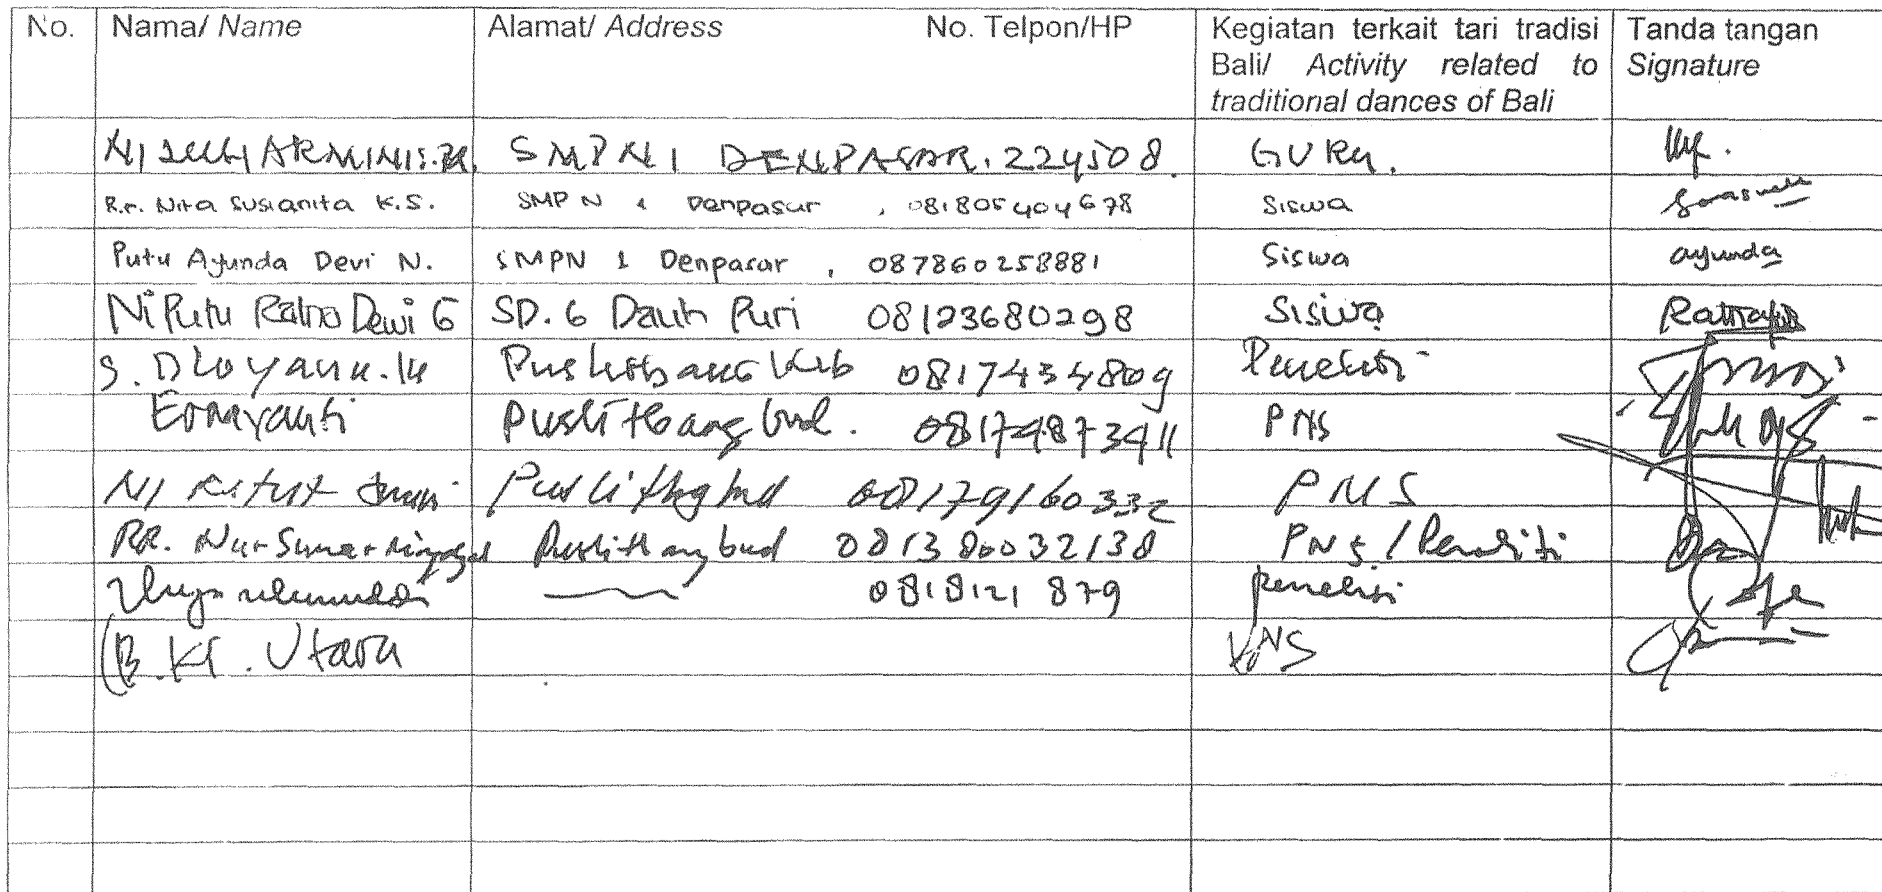 No. Nama/ Name Alamat/ Address No. Telpon/HP Kegiatan terkait tari tradisi Bali/ Activity related to traditional dances of Bali Tanda tangan Signature
SMPN 1 DENPASAR. 224508. GURU.
R.r. Nita Susianita K.S. SMP N 1 Denpasar, 081805404678 Siswa
Putu Ayunda Devi N. SMPN 1 Denpasar, 087860258881 Siswa ayunda
Ni Putu Ratna Dewi G SD. 6 Dauh Puri 08123680298 Siswa
Puslitbang Keb 08174354809 Peneliti
Puslitbang bud. 08174873411 PNS
Ni Ketut Puslitbang bud 08179160332 PNS
RR. Nur Puslitbang bud 081380032138 PNS / Peneliti
0818121 879 peneliti
Utara PNS